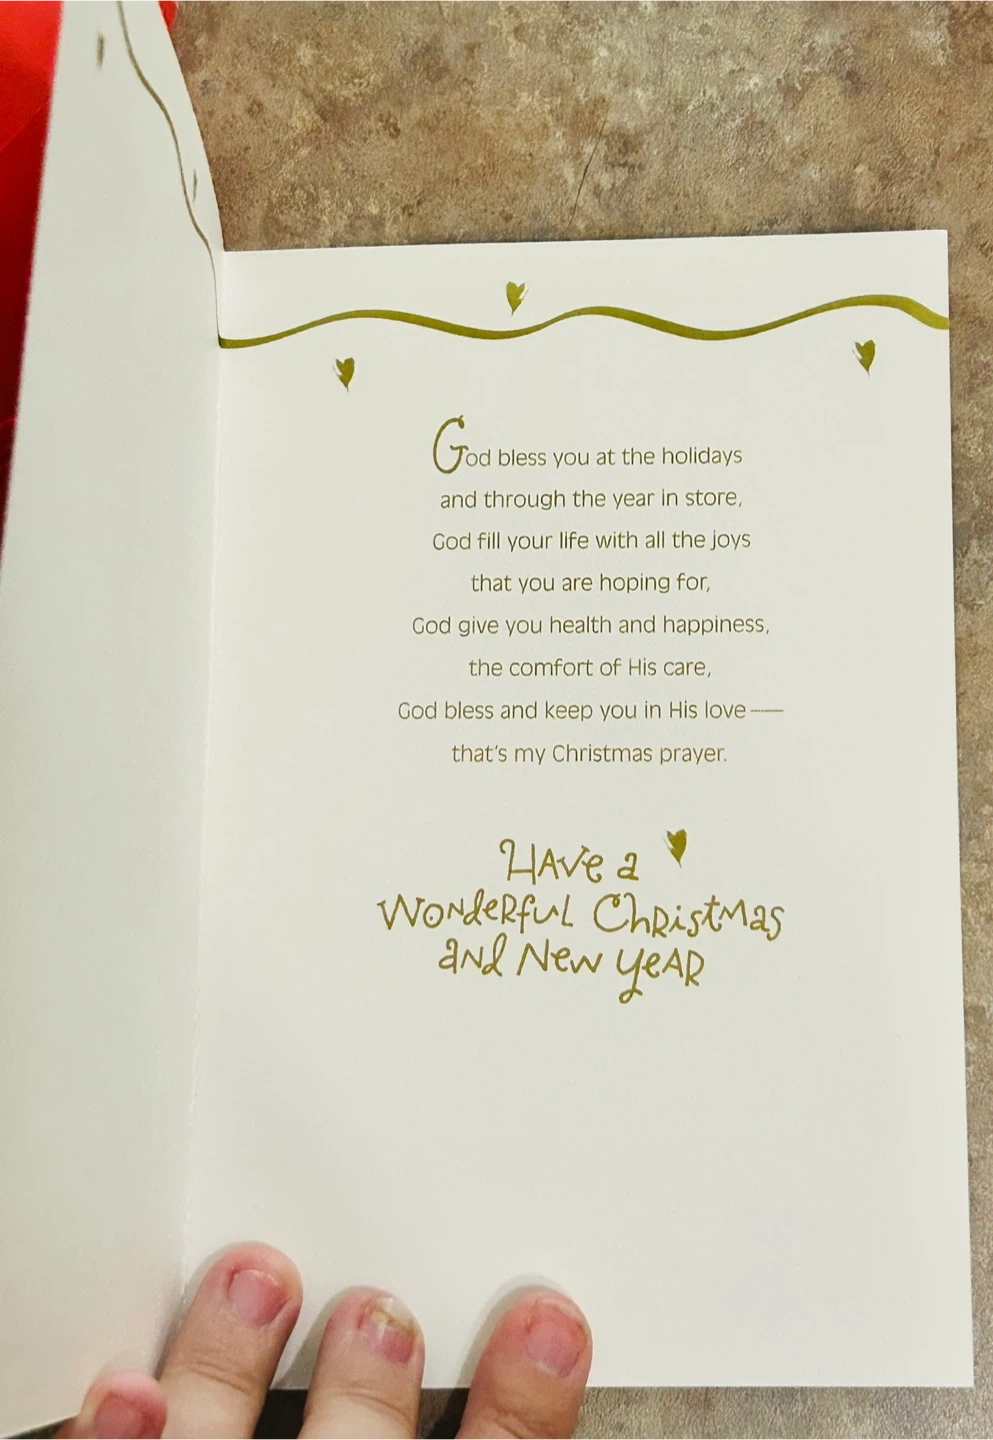 God bless you at the holidays
and through the year in store,
God fill your life with all the joys
that you are hoping for,
God give you health and happiness,
the comfort of His care,
God bless and keep you in His love—
that's my Christmas prayer.
Have a
Wonderful Christmas
and New Year